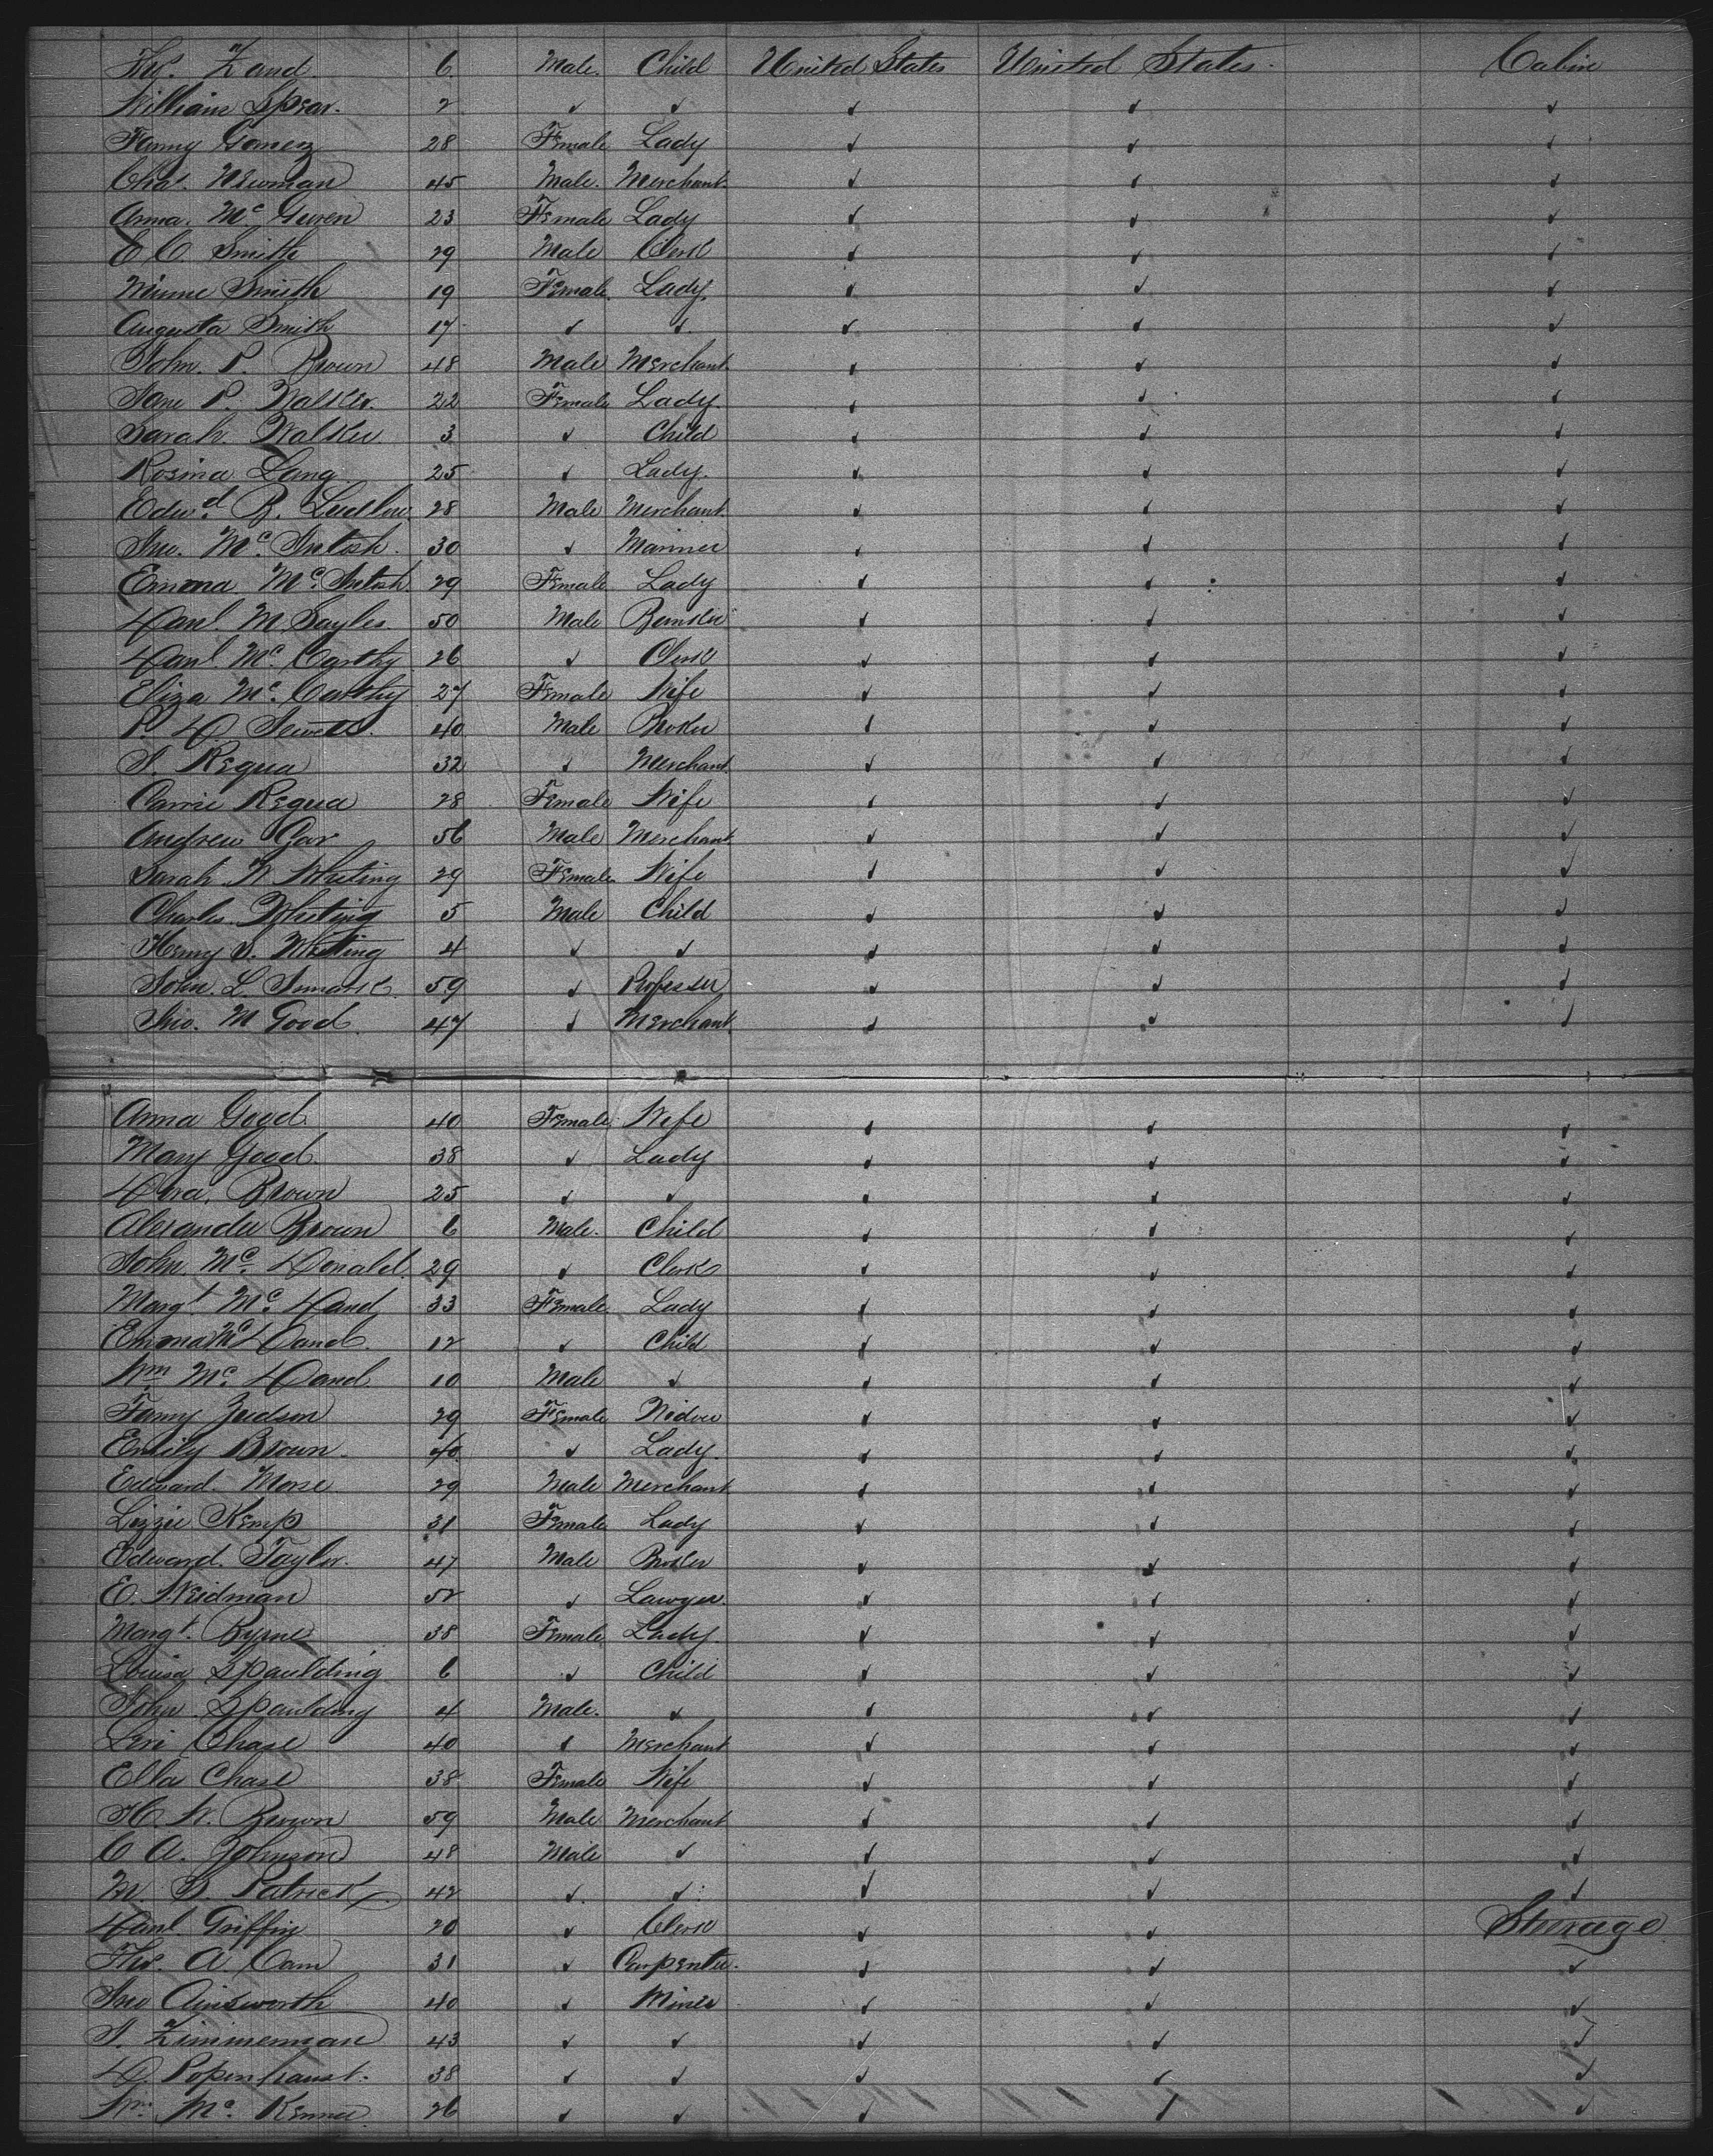 Thos. Zand. 6 Male. Child United States United States. Cabin
William Spear. 2 ✓ ✓ ✓ ✓ ✓
Fanny Gomez 28 Female Lady ✓ ✓ ✓
Chas. Newman 45 Male. Merchant. ✓ ✓ ✓
Anna. Mc Guren 23 Female Lady ✓ ✓ ✓
E C. Smith 29 Male Clerk ✓ ✓ ✓
Minne Smith 19 Female. Lady. ✓ ✓ ✓
Augusta Smith 17 ✓ ✓ ✓ ✓ ✓
John. P. Brown 48 Male Merchant. ✓ ✓ ✓
Jane P. Walker. 22 Female Lady. ✓ ✓ ✓
Sarah. Walker 3 ✓ Child ✓ ✓ ✓
Rosina Lang. 25 ✓ Lady. ✓ ✓ ✓
Edwd. B. Ludlow 28 Male Merchant ✓ ✓ ✓
Jno. Mc. Intosh. 30 ✓ Mariner ✓ ✓ ✓
Emma Mc. Intosh. 29 Female Lady ✓ ✓ ✓
Danl. M Sayles. 50 Male Banker ✓ ✓ ✓
Danl. Mc. Carthy. 26 ✓ Clerk ✓ ✓ ✓
Eliza Mc. Carthy 27 Female Wife ✓ ✓ ✓
P. D. 40 Male Broker ✓ ✓ ✓
J. Requa 32 ✓ Merchant. ✓ ✓ ✓
Carrie Requa 28 Female Wife ✓ ✓ ✓
Andrew Gar 56 Male Merchant. ✓ ✓ ✓
Sarah. W. Whiting 29 Female. Wife ✓ ✓ ✓
Charles Whiting 5 Male Child ✓ ✓ ✓
Henry S. Whiting 4 ✓ ✓ ✓ ✓ ✓
John. L. 59 ✓ Professer ✓ ✓ ✓
Jno. M Good. 47 ✓ Merchant. ✓ ✓ ✓
Anna Good. 40 Female. Wife ✓ ✓ ✓
Mary Good. 38 ✓ Lady ✓ ✓ ✓
Dora, Brown 25 ✓ ✓ ✓ ✓ ✓
Alexander Brown 6 Male. Child ✓ ✓ ✓
John. Mc. Donald. 29 ✓ Clerk ✓ ✓ ✓
Margt. Mc. Dand 33 Female. Lady ✓ ✓ ✓
Emma Mc Dand. 12 ✓ Child ✓ ✓ ✓
Wm Mc. Dand. 10 Male ✓ ✓ ✓ ✓
Fanny Judson 29 Female Widow ✓ ✓ ✓
Emily Brown. 40. ✓ Lady. ✓ ✓ ✓
Edward. Morse 29 Male Merchant ✓ ✓ ✓
Lizzie Kemp 31 Female Lady ✓ ✓ ✓
Edward. Taylor. 47 Male Broker ✓ ✓ ✓
E. Weidman 52 ✓ Lawyer. ✓ ✓ ✓
Margt. Byrne 38 Female Lady. ✓ ✓ ✓
Louisa Spaulding 6 ✓ Child ✓ ✓ ✓
John. Spaulding 4 Male. ✓ ✓ ✓ ✓
Levi Chase 40 ✓ Merchant ✓ ✓ ✓
Ella Chase 38 Female Wife ✓ ✓ ✓
H. W. Brown 59 Male Merchant ✓ ✓ ✓
C A. Johnson 48 Male ✓ ✓ ✓ ✓
M. S. Patrick 42 ✓ ✓ ✓ ✓ ✓
Danl. Griffin 20 ✓ Clerk ✓ ✓ Steerage.
Thos. A. Cam 31 ✓ Carpenter. ✓ ✓ ✓
Jno Ainsworth 40 ✓ Miner ✓ ✓ ✓
J. Zimmerman 43 ✓ ✓ ✓ ✓ ✓
D. Popenhaust. 38 ✓ ✓ ✓ ✓ ✓
Wm. Mc. Kenna. 26 ✓ ✓ ✓ ✓ ✓